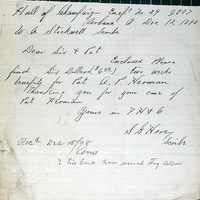 Hall of Champaign Enct No 29 I.O.O.F
Urbana O Dec 12 1898
W. A. Stockwell Scribe
Dear Sir & Pat
Enclosed Please
find Six Dollars ($6.00) two weeks
benefits for Pat A. P. Herman
Thanking you for your care of
Pat Herman
Yours in F H & C
S. G. Hovey
Scribe
Rec'd Dec 15/98